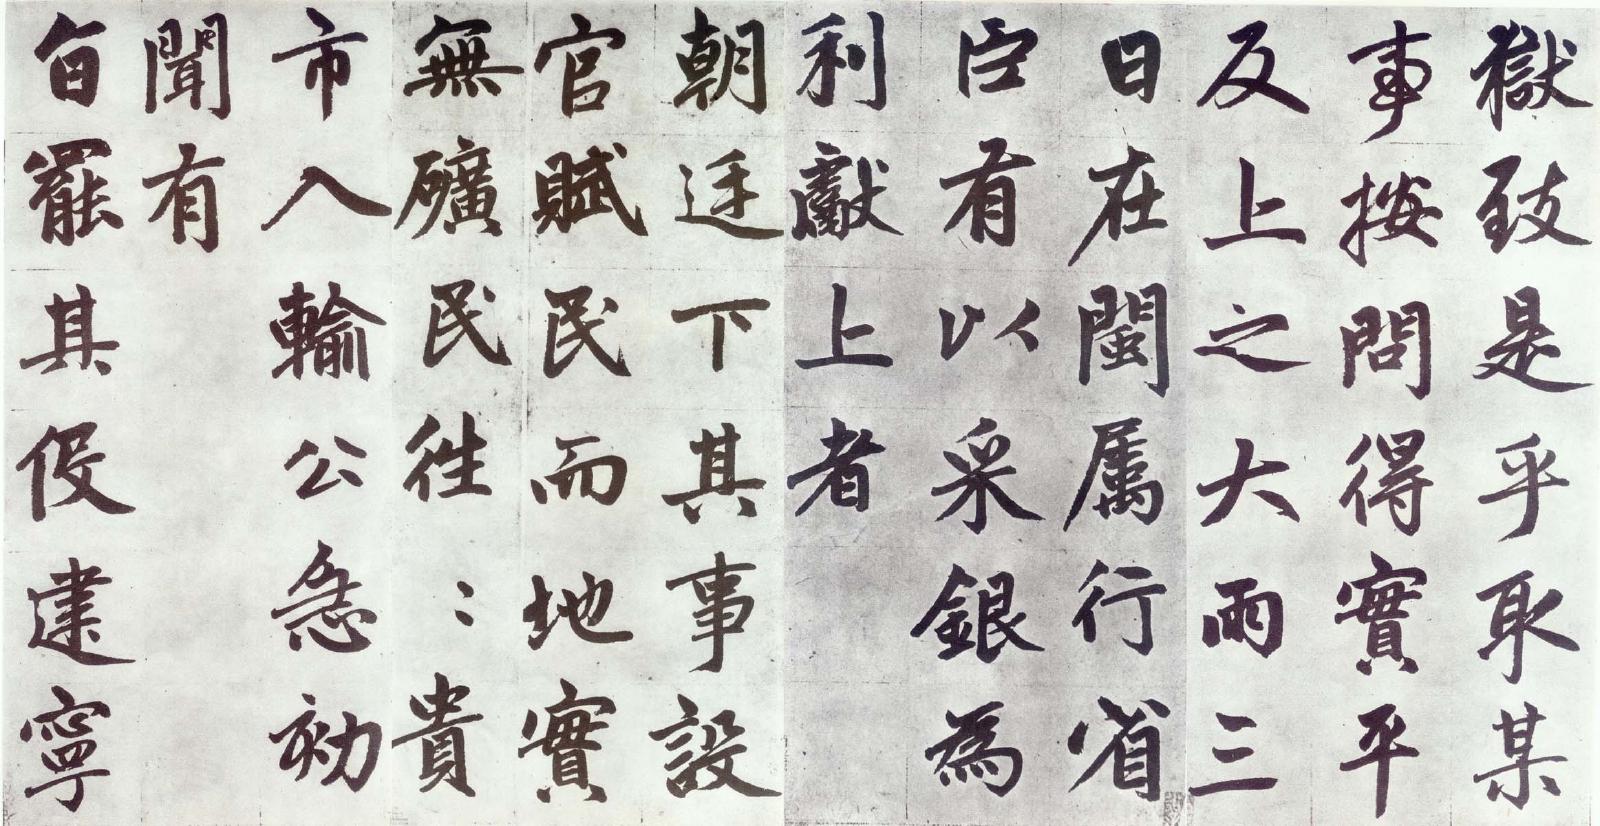 獄致是乎取某
事按問得實平
反上上之大雨三
日在閩属行省
臣有以采銀為
利獻上者
朝廷下其事設
官賦民而地實
無礦民往〻貴
市入輸公急効
聞有
旨罷其役建寧